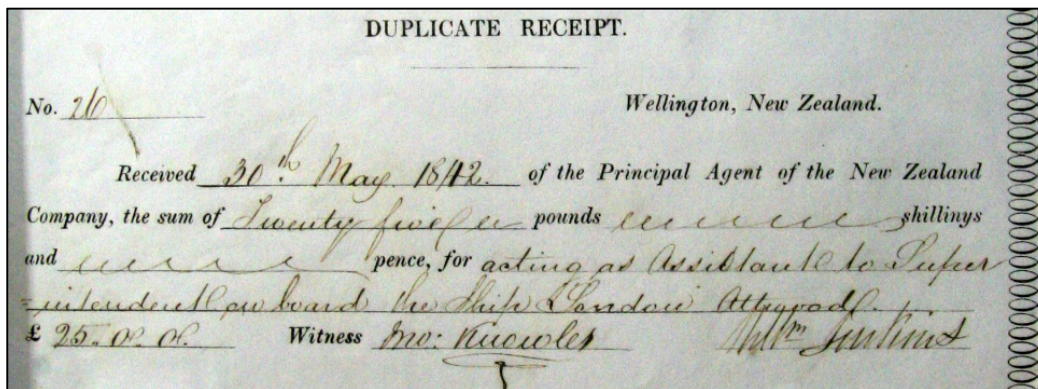 DUPLICATE RECEIPT.
No. 26 Wellington, New Zealand.
Received 30.th May. 1842. of the Principal Agent of the New Zealand
Company, the sum of Twenty five pounds shillings
and pence, for acting as Assistant to Super
=intendent on board the Ship London Attwood.
£ 25. 0. 0. Witness Jno: Knowles Jenkins